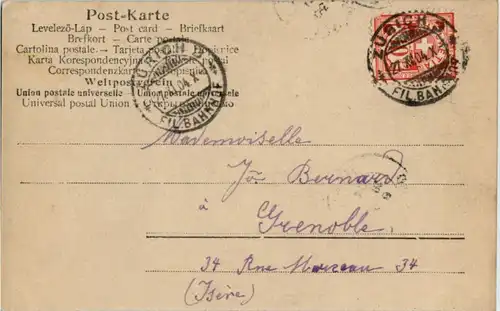 Post-Karte
Levelező-Lap — Post card — Briefkaart
Brefkort — Carte postale
Cartolina postale — Tarjeta postal
Karta Korespondencyjna
Correspondenzkarte
Weltpostverein
Union postale universelle — Union postale universelle
Universal postal Union
ZÜRICH
FIL. BAHNHOF
ZÜRICH 3
27. XII. 04
FIL. BAHNHOF
Mademoiselle
Bernard
à
Grenoble.
34 Rue Marceau 34
(Isère)